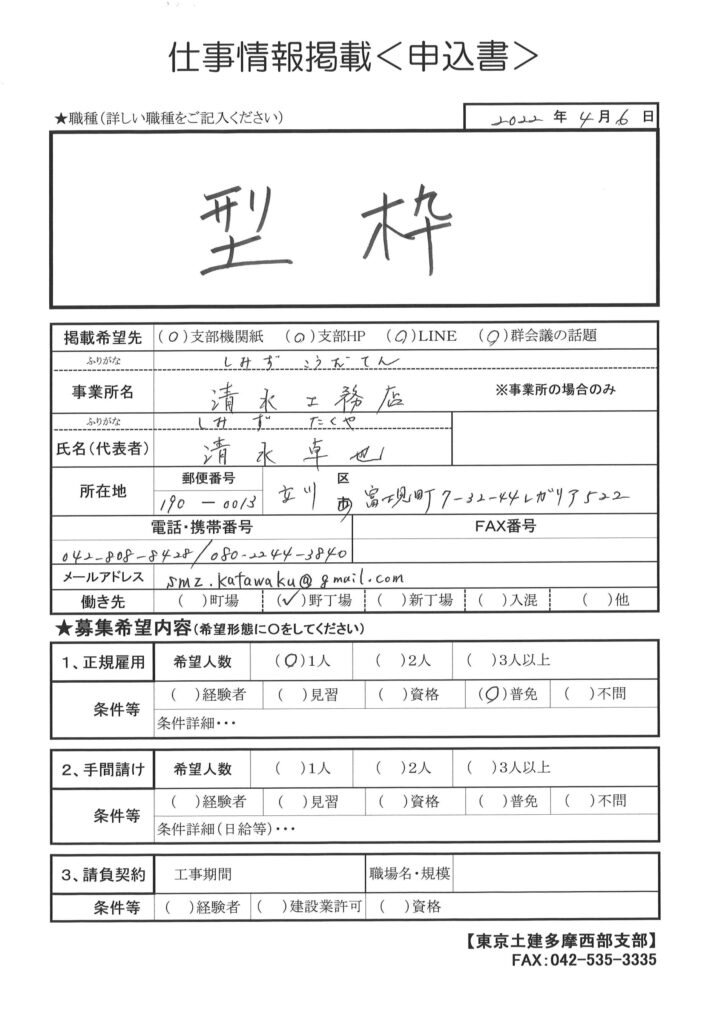 仕事情報掲載<申込書>
★職種(詳しい職種をご記入ください) 2022年4月6日
型枠
掲載希望先 (○)支部機関紙 (○)支部HP (○)LINE (○)群会議の話題
ふりがな しみずこうむてん
事業所名 清水工務店 ※事業所の場合のみ
ふりがな しみず たくや
氏名(代表者) 清水卓也
所在地 郵便番号 190-0013 立川 区 市 富士見町7-32-44レガリア522
電話・携帯番号 FAX番号
042-808-8428/080-2244-3840
メールアドレス smz.katawaku@gmail.com
働き先 ( )町場 (✓)野丁場 ( )新丁場 ( )入混 ( )他
★募集希望内容(希望形態に○をしてください)
1、正規雇用 希望人数 (○)1人 ( )2人 ( )3人以上
条件等 ( )経験者 ( )見習 ( )資格 (○)普免 ( )不問
条件詳細・・・
2、手間請け 希望人数 ( )1人 ( )2人 ( )3人以上
条件等 ( )経験者 ( )見習 ( )資格 ( )普免 ( )不問
条件詳細(日給等)・・・
3、請負契約 工事期間 職場名・規模
条件等 ( )経験者 ( )建設業許可 ( )資格
【東京土建多摩西部支部】
FAX:042-535-3335